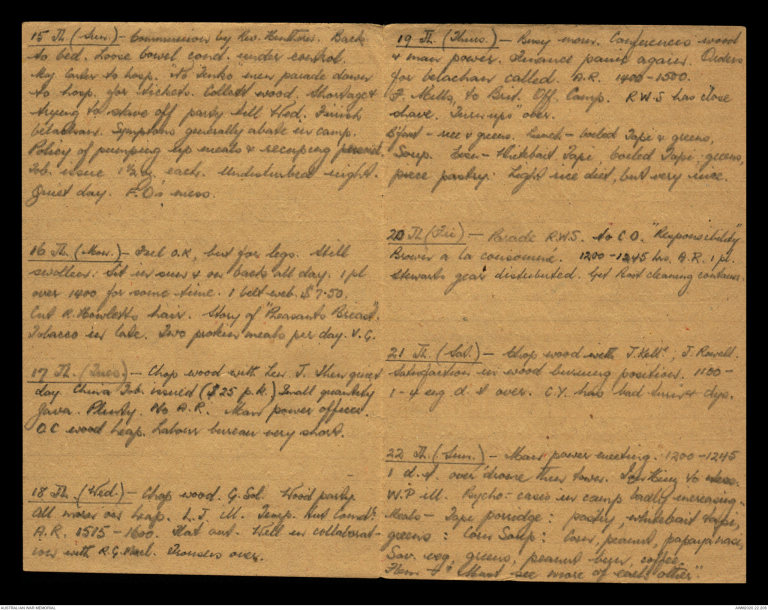 15 Th. (Sun.) - Communion by Rev. Back
to bed. Loose bowel cond. under control.
My letter to hosp. No Tenko men parade down
to hosp. for tickets. Collect wood. Shortage &
trying to stave off party till Wed. Finish
belachan. Symptoms generally abate in camp.
Policy of pumping up meals &
Tob. issue 1½ each. Undisturbed night.
Quiet day. P.O's mess.
16 Th. (Mon.) - Feel O.K, but for legs. Still
swollen. Sit in sun & on back all day. 1 pl
over 1400 for some time. 1 belt web. $7.50.
Cut R. Howlett's hair. Story of "Peasants Breast".
Tobacco in late. Two protein meals per day. V.G.
17 Th. (Tues) - Chop wood with Len J. Then quiet
day. China Tob. issued ($25 p.k.) Small quantity
Java. Plenty. No A.R. Man power officer.
O.C wood heap. Labour bureau very short.
18 Th. (Wed.) - Chop wood. G. Sol. Wood party
all wores on heap. L.J. ill. Temp. Hut Comdt.
A.R. 1515 - 1600. Flat out. Well in collaborat-
ion with R.G. Trousers over.
19 Th. (Thurs.) - Busy morn. Conferences wood
& man power. Finance panic again. Orders
for belachan called. A.R. 1400 - 1500.
F. Mells, to Brit. Off. Camp. R.W.S has close
shave. "Turnups" over.
B'fast - rice & greens. Lunch - boiled Tapi & greens,
Soup. Even - Whitebait Tapi, boiled Tapi, greens,
piece pastry: Light rice diet, but very nice.
20 Th (Fri) - Parade R.W.S. to C.O. "Responsibility"
Brown a la consomme. 1200 - 1245 hrs. A.R. 1 pl.
Stewarts gear distributed. Get Root cleaning container.
21 Th. (Sat.) - Chop wood with J. Kell, J. Rowell.
Satisfaction in wood burning position. 1100 -
1 - 4 eng d.t over. C.Y. has bad & dys.
22 Th. (Sun.) - Man power meeting. 1200 - 1245
1 d.t. over drome then tower.
W.P ill. Psycho- cases in camp badly increasing.
Meals - Tapi porridge: pasty, whitebait tapi,
greens: Corn Soup: Corn, peanut, papaya
Sav. veg, greens, peanut bun, coffee.
"Must see more of each other".
AUSTRALIAN WAR MEMORIAL